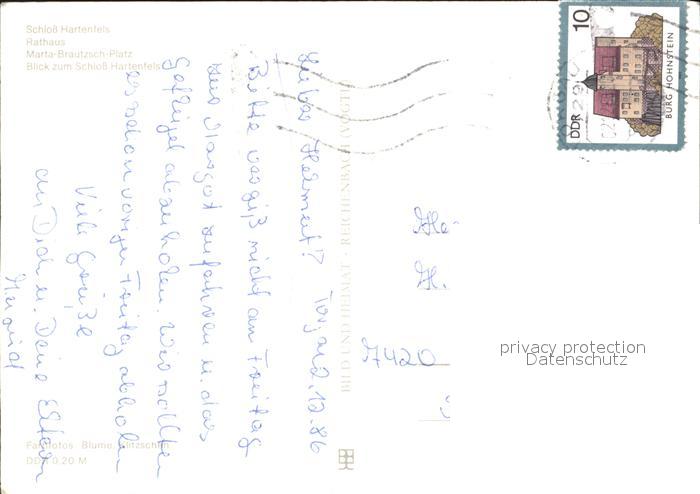 Schloß Hartenfels
Rathaus
Marta-Brautzsch-Platz
Blick zum Schloß Hartenfels
Lieber Helmut! Torgau 2.12.86
Bitte vergiß nicht am Freitag
zu Margot anfahren u. das
Geflügel abzuholen. Wir sollten
es schon vorigen Freitag abholen
Viele Grüße
an Dich u. Deine Eltern
BILD UND HEIMAT · REICHENBACH (VOGTL
Farbfotos Blume, Klitzschen
DDR 0,20 M
10
DDR
BURG HOHNSTEIN
7420
privacy protection
Datenschutz